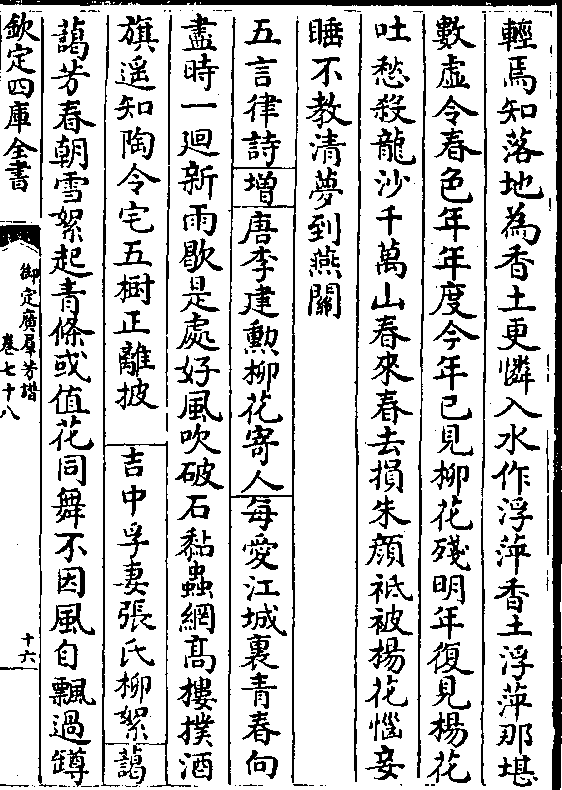 輕焉知落地為香土更憐入水作浮萍香土浮萍那堪
數虛令春色年年度今年已見柳花殘明年復見楊花
吐愁殺龍沙千萬山春來春去損朱顔袛被楊花惱妾
睡不教清夢到燕關
五言律詩增唐李建勲柳花寄人每愛江城裏青春向
盡時一迴新雨歇是處好風吹破石黏蟲網髙樓撲酒
旗遥知陶令宅五樹正離披 吉中孚妻張氏柳絮藹
藹芳春朝雪絮起青條或值花同舞不因風自飄過罇
欽定四庫全書
御定廣羣芳譜
卷七十八
十六